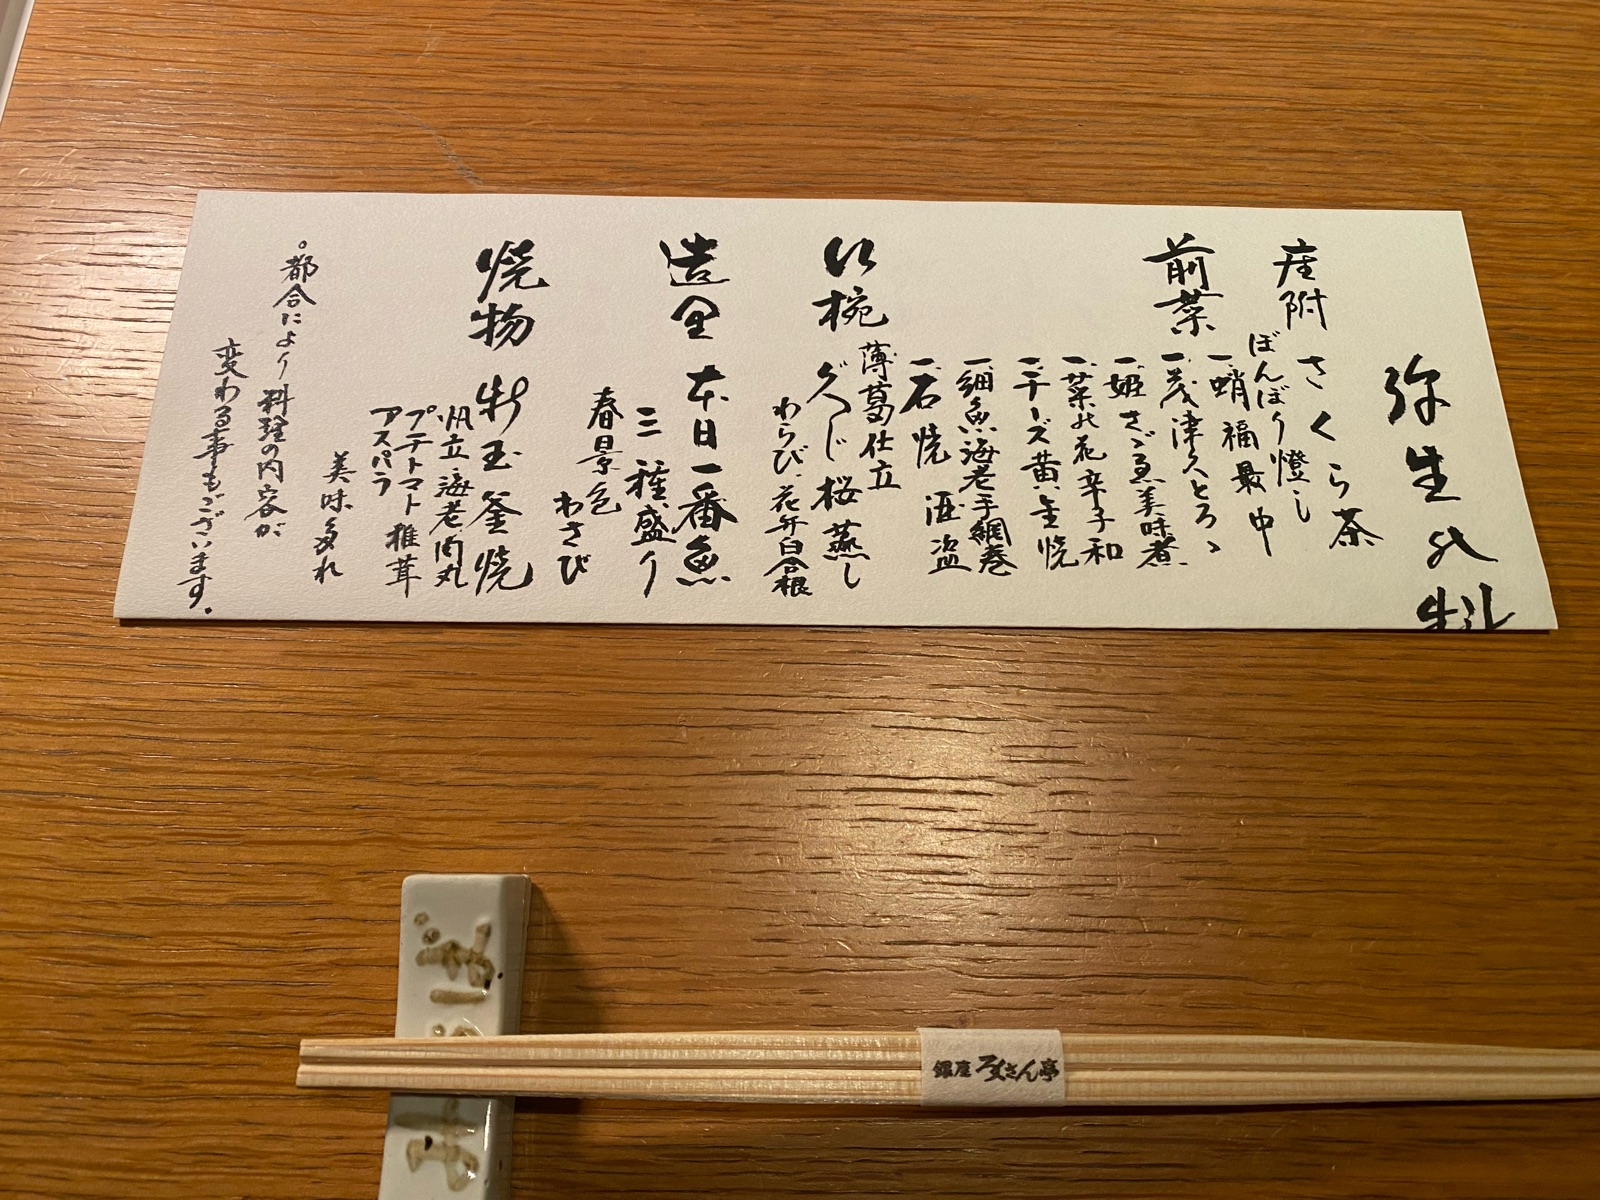 弥生の料
座附 さくら茶
ぼんぼり燈し
前菜 一、蛸福最中
一、茂津久とろゝ
一、姫さざゑ美味煮
一、菜の花辛子和
一、チーズ黄金焼
一、細魚海老手綱巻
一、石焼 酒盗
薄葛仕立
御椀 ぐじ桜蒸し
わらび、花弁百合根
造里 本日一番魚
三種盛り
春景色
わさび
焼物 牡玉釜焼
帆立 海老 肉丸
プチトマト 椎茸
アスパラ
美味たれ
。都合により料理の内容が
変わる事もございます。
銀座
さん亭